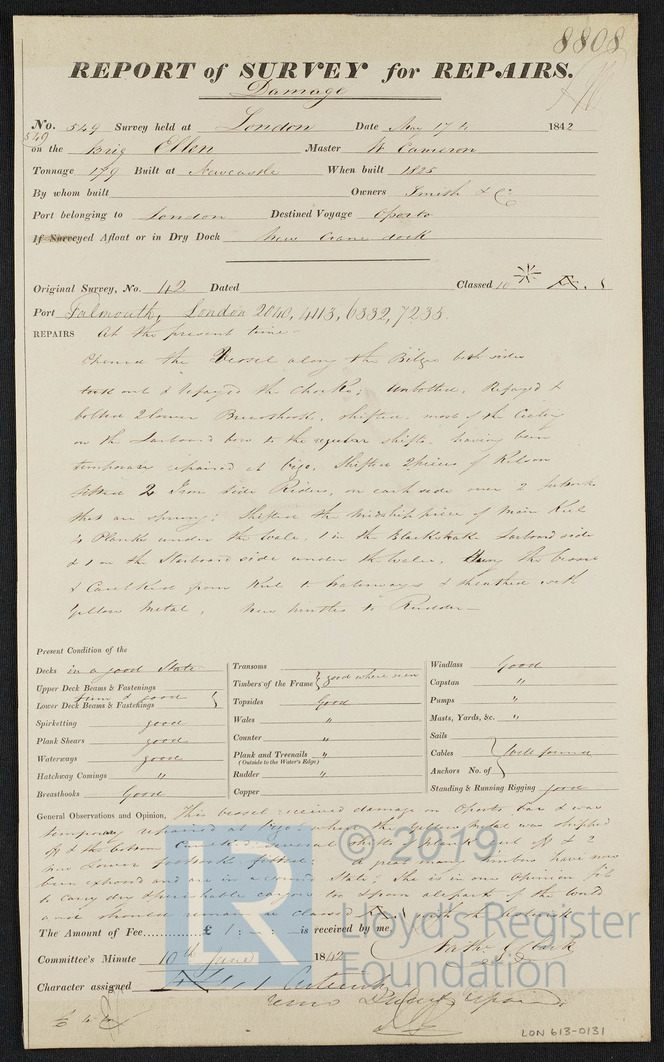 8808
REPORT of SURVEY for REPAIRS.
Damage
No. 549 Survey held at London Date May 17th 1842
549
on the Brig Ellen Master W Cameron
Tonnage 179 Built at Newcastle When built 1825
By whom built Owners Smith & Co
Port belonging to London Destined Voyage Oporto
If Surveyed Afloat or in Dry Dock New Crane dock
Original Survey, No. 42 Dated Classed 10
Port Falmouth, London 2040, 4113, 6332, 7235.
REPAIRS At the present time
Opened the Vessel along the Bilges both sides
took out & refayed the Chocks; unbolted, Refayed &
bolted 2 lower Breasthooks, shifted most of the Ceiling
on the Larboard bow to the regular shifts having been
temporary repaired at Vigo. Shifted 2 pieces of Kelson
fitted 2 Iron side Riders, on each side over 2 futtocks
that are sprung; Shifted the midship piece of Main Keel
4 Planks under the Wale, 1 in the Blackstrake Larboard side
& 1 on the Starboard side under the Wales. the
& Caulked from Keel to Waterways & sheathed with
Yellow Metal, New pintles to Rudder
Present Condition of the
Decks in a good State
Upper Deck Beams & Fastenings
firm & good
Lower Deck Beams & Fastenings
Spirketting good
Plank Shears good
Waterways good
Hatchway Comings "
Breasthooks Good
Transoms
Timbers of the Frame good where seen
Topsides Good
Wales "
Counter "
Plank and Treenails "
(Outside to the Water's Edge)
Rudder "
Copper
Windlass Good
Capstan "
Pumps "
Masts, Yards, &c. "
Sails
Cables Well found
Anchors No. of
Standing & Running Rigging good
General Observations and Opinion, This vessel received damage on Oporto Bar & was
temporary repaired at Vigo where the Yellow Metal was stripped
off & the bottom Caulked several shifts of plank put off & 2
new Lower futtocks fitted; A great many timbers have now
been exposed and are in a sound State; She is in our Opinion fit
to carry dry & perishable cargoes to & from all parts of the World
and should remain as classed
The Amount of Fee £ 1 : - : - is received by me,
Committee's Minute 10th June 1842
Character assigned
LON 613-0131
© 2019
LR
Lloyd's Register
Foundation